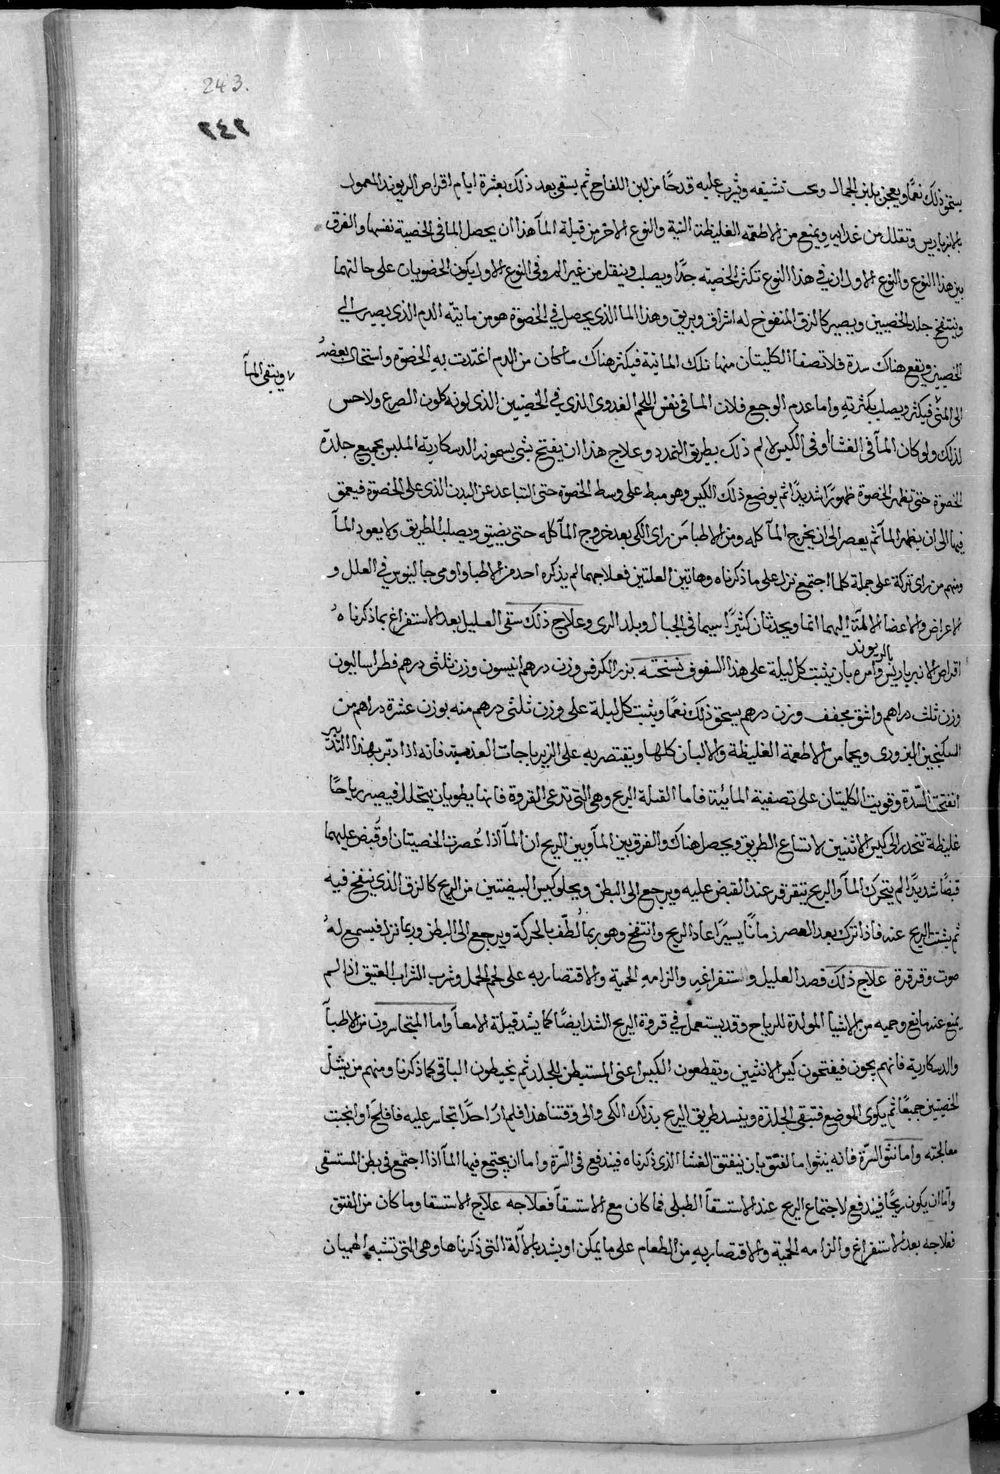 243.
٢٤٢
يسحق ذلك نعما ويعجن بلبن الجمال ويشرب عليه قدحا من لبن اللقاح ثم يسقى بعد ذلك بعشرة ايام اقراص الريوند المعمول
بالانبرباريس وتقلل من غذايه ويمنع من الاطعمه الغليظة النية والنوع الاخر من قيلة المآ هذا ان يحصل الما في الخصية نفسها والفرق
بين هذا النوع والنوع الاول ان في هذا النوع تكبر الخصيه جدا ويصلب وينتقل من غير الم وفي النوع الاول يكون الخصويان على حالتهما
وينتفخ جلد الخصيين ويصير كالزق المنفوخ له اشراق وبريق وهذا الما الذي يحصل في الخصوة هو من مائيه الدم الذي يصير الي
الخصيين ويقع هناك سدة فلا تصفا الكليتان منها تلك المائية فيكثر هناك ما كان من الدم اغتذت به الخصوة واستحال بعضه
ويبقى المآ
الى المنى فيكثر ويصلب بكثرته واما عدم الوجع فلان الما في نفس اللحم الغددى الذي في الخصيين الذي لونه كلون الصرع ولا حس
لذلك ولو كان المآ في الغشا او في الكيس لالم ذلك بطريق التمدد وعلاج هذا ان يفتح بشى يسمونه الدسكاريه الملبن جميع جلدة
الخصوة حتى تظهر الخصوة ظهورا شديدا ثم يوضع ذلك الكيس وهو مبط على وسط الخصوة حتى التباعد عن البدن الذي على الخصوة فيعمق
فيها الى ان يظهر المآ ثم يعصر الى ان يخرج المآ كله ومن الاطبا من راى الكى بعد خروج المآ كله حتى يضيق ويصلب الطريق ولا يعود المآ
ومنهم من راى تركة على جملة كلما اجتمع نزل على ما ذكرناه وهاتين العلتين فعلاجهما لم يذكره احد من الاطبا واومى جالينوس في العلل و
الاعراض والاعضا الالمة اليهما انما ويحدثان كثيرا سيما في الجبال وبلد الرى وعلاج ذلك سقى العليل بعد الاستفراغ بما ذكرناه
بالريوند
اقراص الانبرباريس وامره بان يثبت كل ليلة على هذا السفوف نسخته بزر الكرفس وزن درهم انيسون وزن ثلثى درهم فطراساليون
وزن ثلث دراهم واشق مجفف وزن درهم يسحق ذلك نعما ويثبت كل ليلة على وزن ثلثى درهم منه بوزن عشرة دراهم من
السكنجبين البزورى ويحما من الاطعمة الغليظة والالبان كلها ويقتصر به على الزيرباجات العذبه فانه اذا دبر بهذا التدبير
انفتحت السدة وقويت الكليتان على تصفية المائية فاما القيلة الريح وهى التى تدعى القروة فانها رطوبات يتحلل فيصير رياحا
غليظة تنحدر الى كيس الانثيين لاتساع الطريق ويحصل هناك والفرق بين المآ وبين الريح ان المآ اذا عصرت الخصيتان او قبض عليهما
قبضا شديدا لم يتحرك المآ والريح يتقرقر عند القبض عليه ويرجع الى البطن ويخلو كيس البيضتين من الريح كالزق الذي ينفخ فيه
ثم يشتت الريح عنه فاذا ترك بعد العصر زمانا يسيرا عاد الريح وانتفخ وهو ربما لطف بالحركة ويرجع الى البطن وربما نزل فيسمع له
صوت وقرقرة علاج ذلك فصد العليل واستفراغه والزامه الحمية والاقتصار به على لحم الحمل وشرب الشراب العتيق اذا لم
يمنع عنه مانع وحميه من الاشيا المولدة للرياح وقد يستعمل في قروة الريح الشد ايضا كما يشد قيلة الامعا واما المتجاسرون من الاطبآ
والدسكارية فانهم يجون فيفتحون كيس الانثيين ويقطعون الكيس اعنى المستبطن للجلد ثم يخيطون الباقى كما ذكرنا ومنهم من يشل
الخصيتين جميعا ثم يكوى الموضع فتبقى الجلدة وينسد طريق الريح بذلك الكى والى وقتنا هذا فلم ار احدا تجاسر عليه فافلح او انجبت
معالجته واما نتؤ السرة فانه ينتوا ما لفتق بان ينفتق الغشا الذي ذكرناه فيندفع في السرة واما ان يجتمع فيها المآ اذا اجتمع في بطن المستسقى
واما ان يكون ريحا فيندفع لاجتماع الريح عند الاستسقآ الطبلى فما كان مع الاستسقآ فعلاجه علاج الاستسقا وما كان من الفتق
فعلاجه بعد الاستفراغ والزامه الحمية والاقتصار به من الطعام على ما يمكن او يشد بالآلة التى ذكرناها وهى التى تشبه الهميان